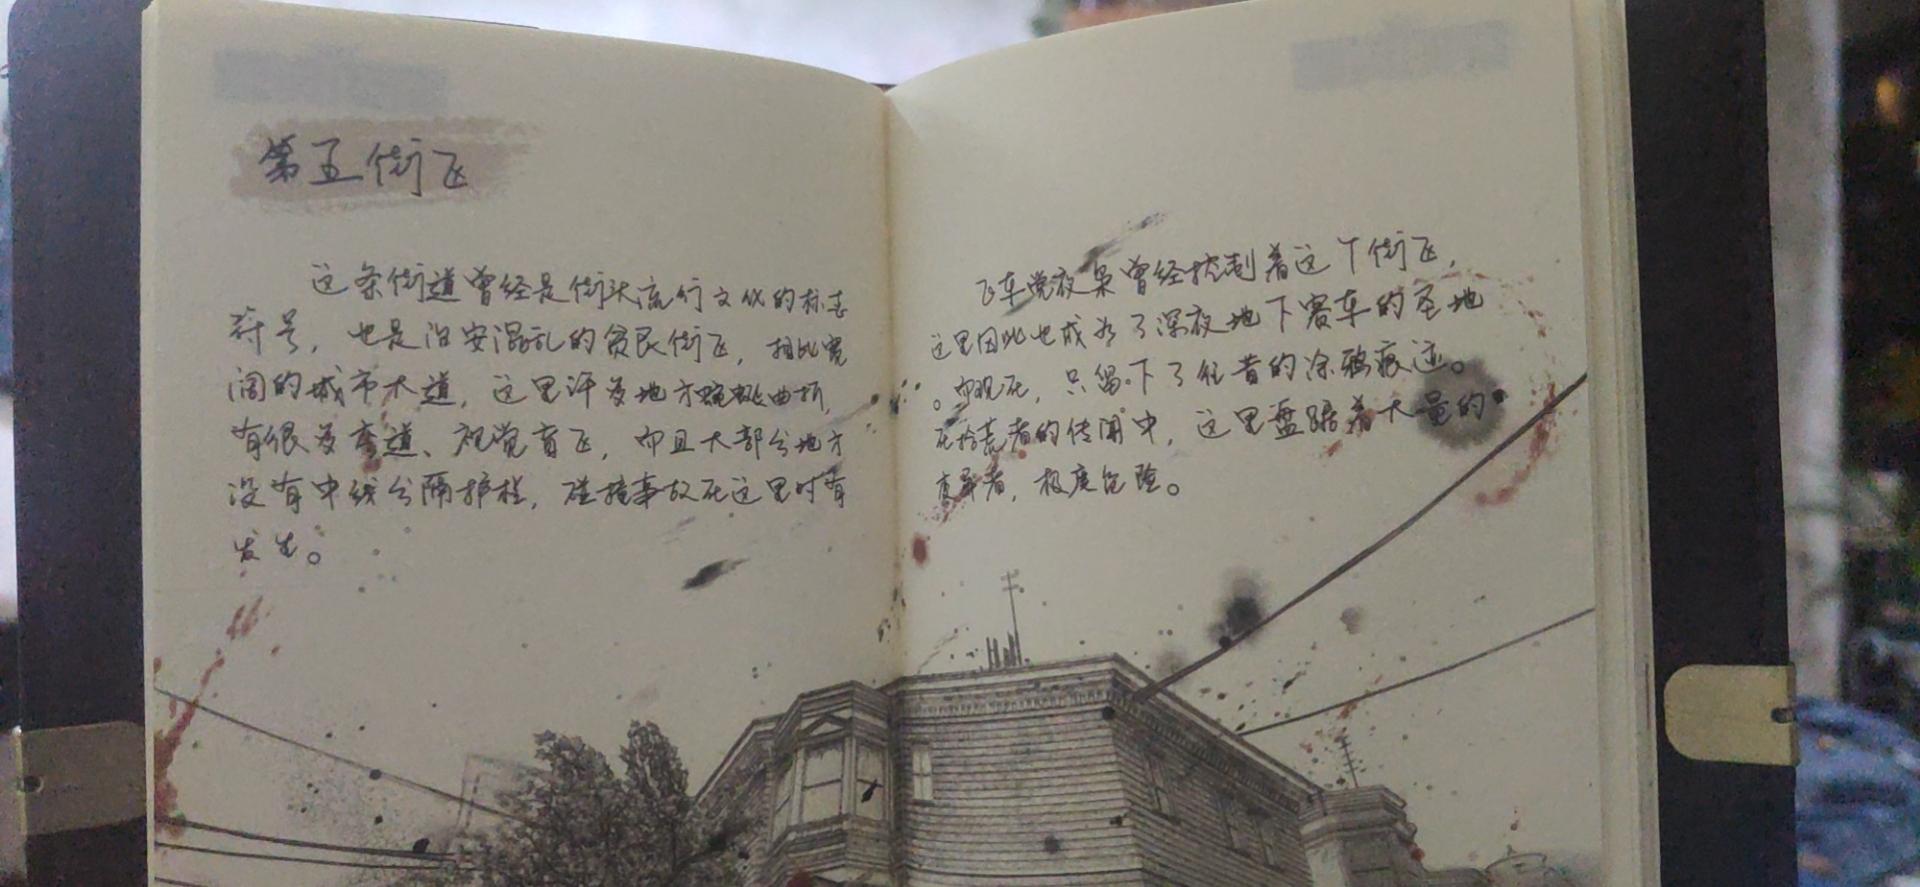 第五街区
这条街道曾经是街头流行文化的标志
符号，也是治安混乱的贫民街区，相比宽
阔的城市大道，这里许多地方蜿蜒曲折，
有很多弯道、视觉盲区，而且大部分地方
没有中线分隔护栏，碰撞事故在这里时有
发生。
飞车党夜枭曾经控制着这个街区，
这里因此也成为了深夜地下赛车的圣地
。而现在，只留下了往昔的涂鸦痕迹。
在拾荒者的传闻中，这里盘踞着大量的
变异者，极度危险。